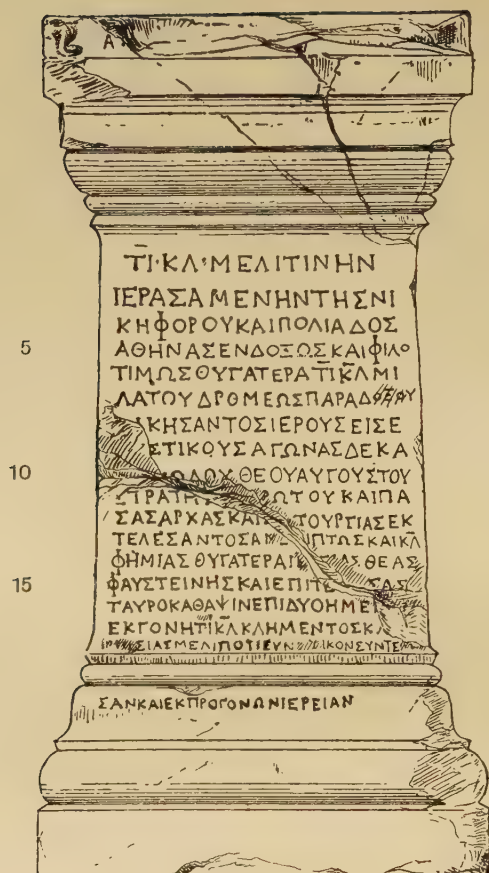 Α
Τ̅Ι·ΚΛ·ΜΕΛΙΤΙΝΗΝ
ΙΕΡΑΣΑΜΕΝΗΝΤΗΣΝΙ
ΚΗΦΟΡΟΥΚΑΙΠΟΛΙΑΔΟΣ
5 ΑΘΗΝΑΣΕΝΔΟΞΩΣΚΑΙΦΙΛΟ
ΤΙΜΩΣΘΥΓΑΤΕΡΑΤ̅ΙΚ̅ΛΜΙ
ΛΑΤΟΥΔΡΘΜΕΩΣΠΑΡΑΔ
ΙΚΗΣΑΝΤΟΣΙΕΡΟΥΣΕΙΣΕ
ΣΤΙΚΟΥΣΑΓΩΝΑΣΔΕΚΑ
10 ΟΔΟΥΘΕΟΥΑΥΓΟΥΣΤΟΥ
ΣΤΡΑΤΗ ΩΤΟΥΚΑΙΠΑ
ΣΑΣΑΡΧΑΣΚΑΙ ΤΟΥΡΓΙΑΣΕΚ
ΤΕΛΕΣΑΝΤΟΣΑ ΙΠΤΩΣΚΑΙΚΛ
ΦΗΜΙΑΣΘΥΓΑΤΕΡΑ ΑΣΘΕΑΣ
15 ΦΑΥΣΤΕΙΝΗΣΚΑΙΕΠΙΤΕ ΣΑΣ
ΤΑΥΡΟΚΑΘΑΨΙΝΕΠΙΔΥΟΗΜΕ
ΕΚΓΟΝΗΤ̅ΙΚ̅ΛΚΛΗΜΕΝΤΟΣΚ
ΣΙΑΣΜΕΛΙΠΟΤΙΕΥΝ ΙΚΟΝΣΥΝΤΕ
ΣΑΝΚΑΙΕΚΠΡΟΓΟΝΩΝΙΕΡΕΙΑΝ